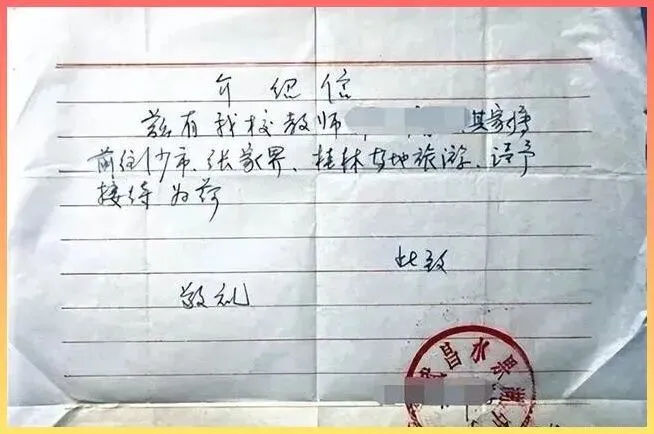 介绍信
兹有我校教师 其家属
前往沙市、张家界、桂林各地旅游、请予
接待为荷
此致
敬礼
武昌水果湖